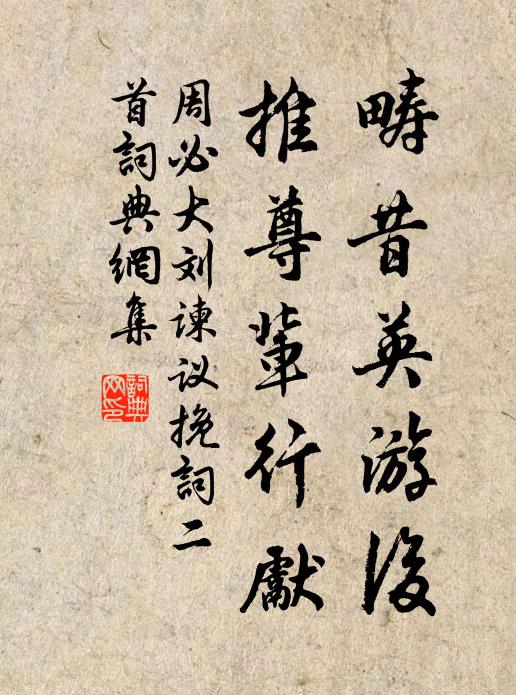 畴昔英游後
推尊輩行獻
周必大刘諫议挽詞二
首詞典網集
詞典
网印